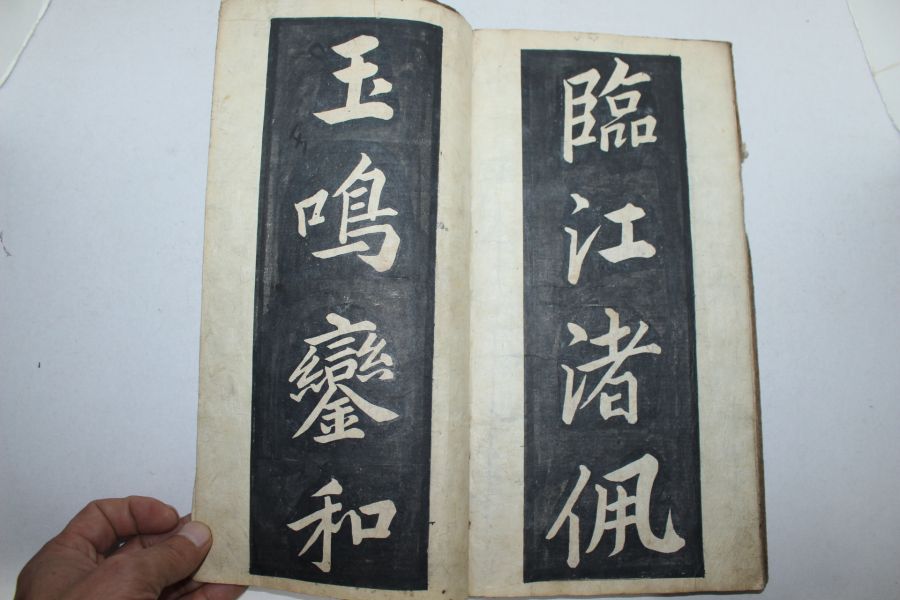 臨江渚佩
玉鳴鑾和